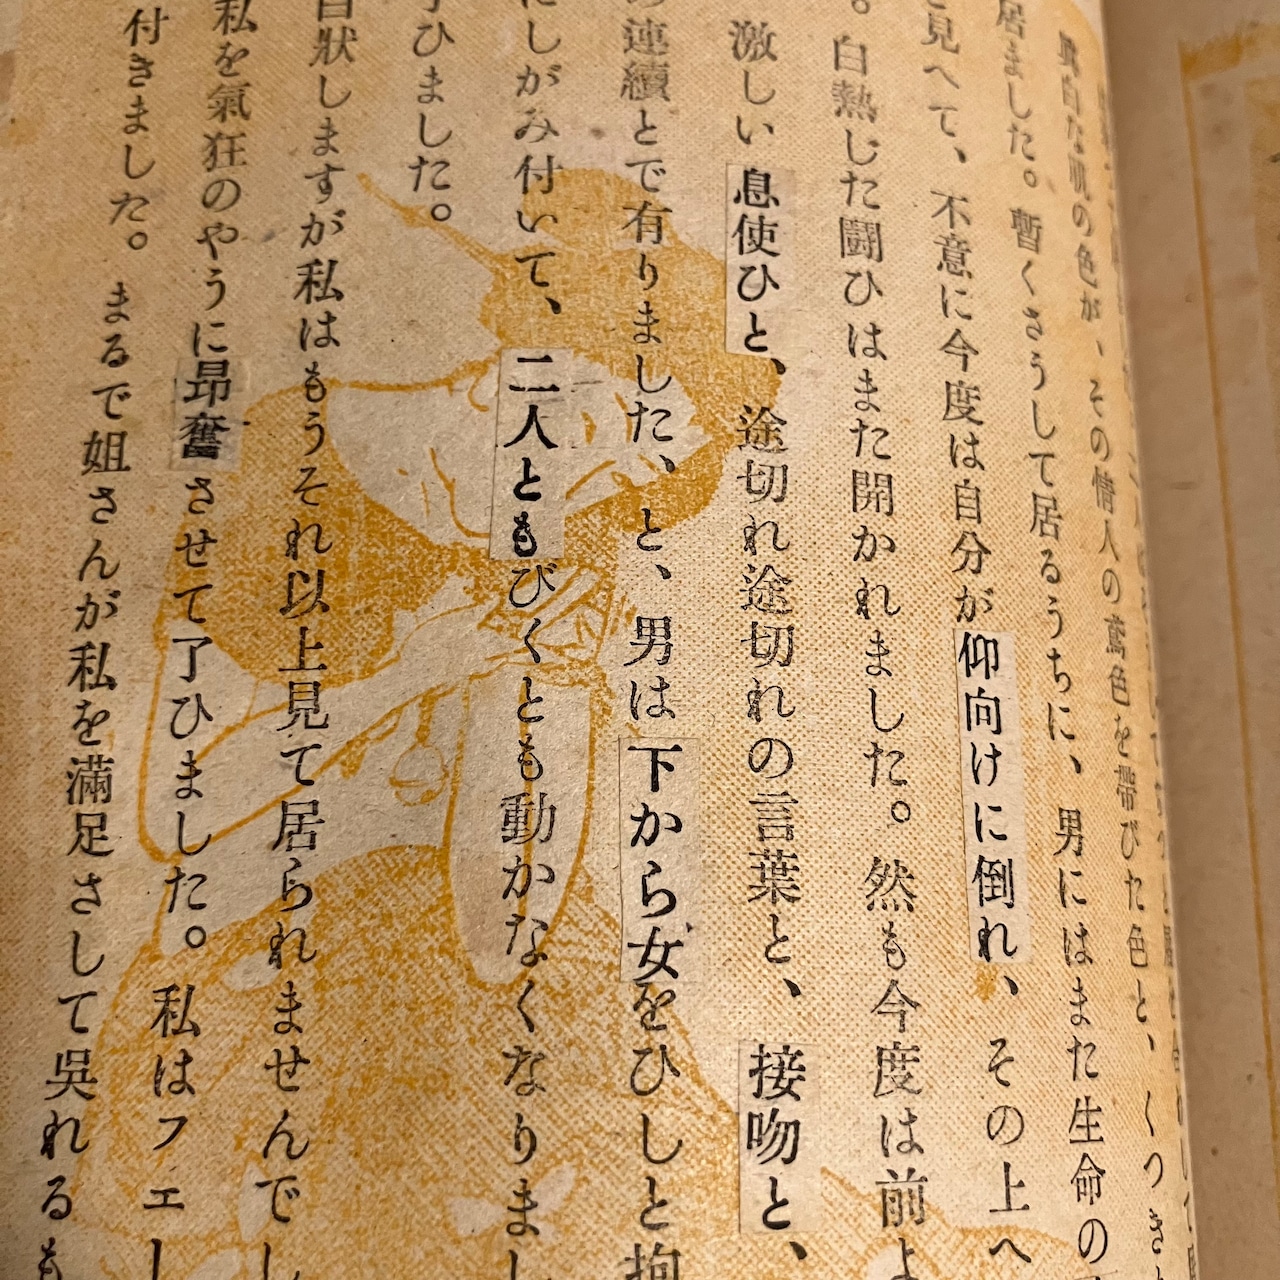 眞白な肌の色が、その情人の鳶色を帶びた色と、くつき
居ました。暫くさうして居るうちに、男にはまた生命の
見へて、不意に今度は自分が仰向けに倒れ、その上へ
。白熱じた闘ひはまた開かれました。然も今度は前よ
激しい息使ひと、途切れ途切れの言葉と、接吻と、
連續とで有りました、と、男は下から女をひしと抱
にしがみ付いて、二人ともびくとも動かなくなりまし
ひました。
白狀しますが私はもうそれ以上見て居られませんでし
私を氣狂のやうに昻奮させて了ひました。私はフェ
付きました。まるで姐さんが私を滿足さして呉れるも